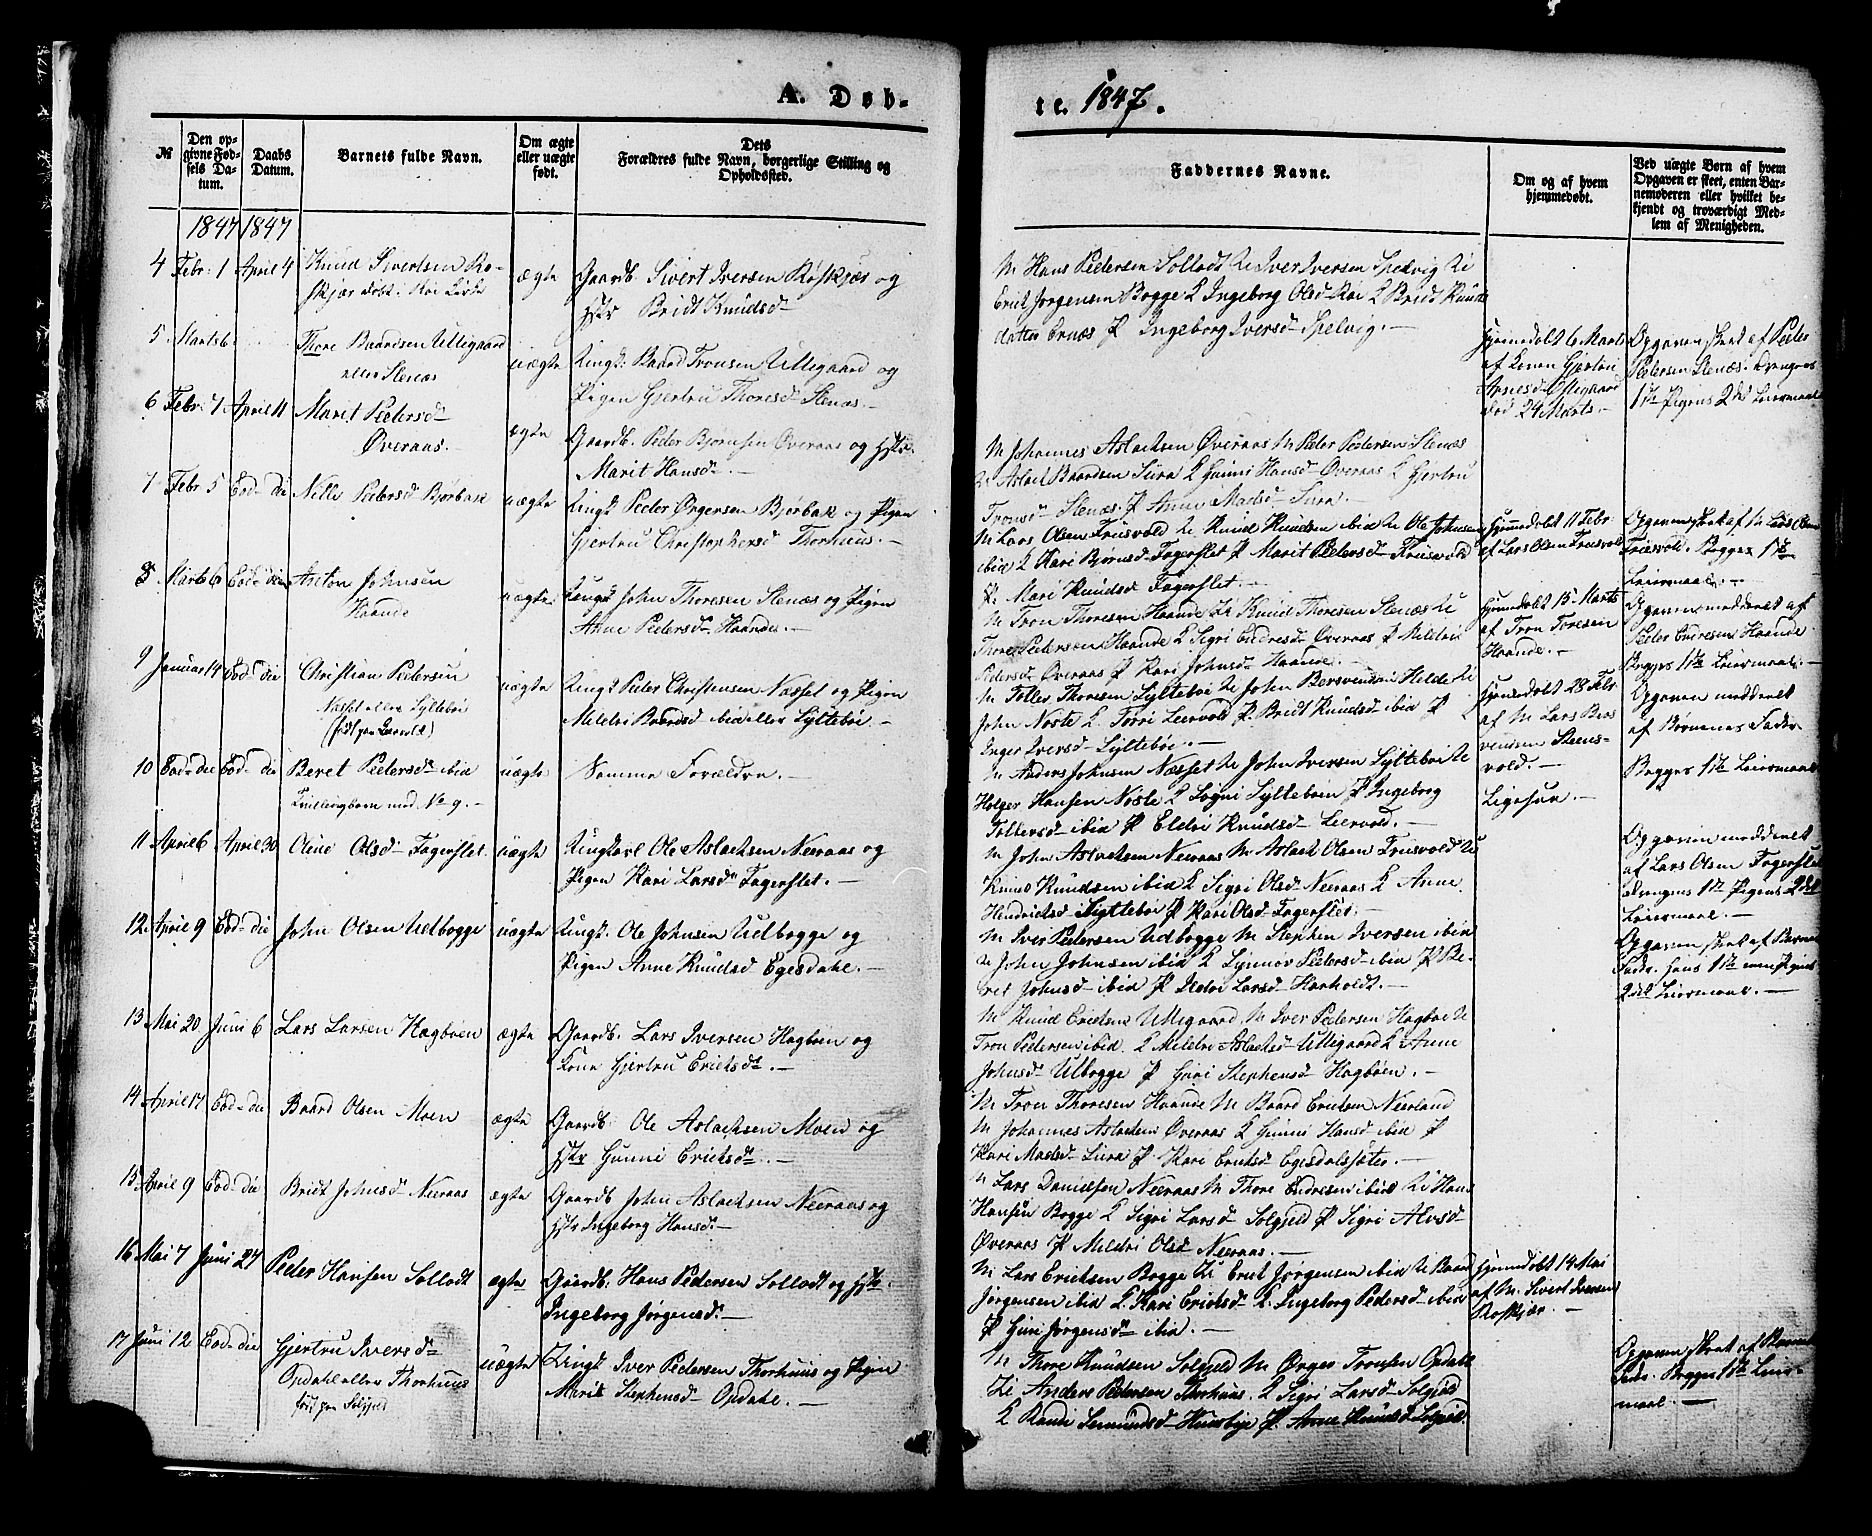 A. Døb-
te. 1847.
№
Den op-
givne Fød-
sels Da-
tum.
Daabs
Datum.
Barnets fulde Navn.
Om ægte
eller uægte
født.
Dets
Forældres fulde Navn, borgerlige Stilling og
Opholdssted.
Faddernes Navne.
Om og af hvem
hjemmedøbt.
Ved uægte Børn af hvem
Opgaven er skeet, enten Bar-
nemoderen eller hvilket be-
kjendt og troværdigt Med-
lem af Menigheden.
1847 1847
4 Febr: 1 April 4 Knud Sivertsen Rø-
skjær døbt i Røe Kirke
ægte
Gaardb. Sivert Iversen Røskjær og
Hstr Bridt Knudsd
M Hans Pedersen Sollodt U Iver Iversen Spelvig U
Erik Jørgensen Bogge K Ingeborg Olsd Røe K Bridt Knuds
datter Ernæs P Ingeborg Iversd Spelvig.
5 Marts 6 Thore Baardsen Ullegaard
eller Stenæs
uægte
Ungk: Baard Tronsen Ullegaard og
Pigen Gjertru Thoresd Stenæs.
Hjemmedøbt 6 Marts
af Konen Gjertru
Arnesd Ullegaard
død 24 Marts
Opgaven skeet af Peder
Pedersen Stenæs. Drengens
1ste Pigens 2det Leiermaal
6 Febr: 7 April 11 Marit Pedersd
Øveraas.
ægte
Gaardb. Peder Bjørnsen Øveraas og Hstr
Marit Hansd.
M Johannes Aslachsen Øveraas M Peder Pedersen Stenæs
U Aslak Baardsen Sira K Gunni Hansd Øveraas K Gjertru
Tronsd Stenæs P Anne Madsd Sira.
7 Febr 5 Eod: die Nille Pedersd Bjørbak
uægte
Ungk Peder Ørgersen Bjørbak og Pigen
Gjertru Christophersd Thorhuus.
M Lars Olsen Frisvold U Knud Knudsen ibid U Ole Johnsen
ibid K Kari Bjørnsd Fagerslet P Marit Pedersd Frisvold
P. Mari Knudsd Fagerslet.
Hjemmedøbt 11 Febr:
af Lars Olsen Frisvold
Opgaven skeet af M Lars Olsen
Frisvold. Begges 1ste
Leiermaal.
8 Marts 6 Eod: die Anton Johnsen
Haande
uægte
Ungk John Thoresen Stenæs og Pigen
Anne Pedersd Haande.
M Tron Thoresen Haande U Knud Thoresen Stenæs U
Thore Pedersen Haande K Sigri Endresd Øveraas P Mildri
Pedersd Øveraas P Kari Johnsd Haande.
Hjemmedøbt 15 Marts
af Tron Toresen
Haande.
Opgaven meddelet af
Peder Endresen Haande
Begges 1ste Leiermaal.
9 Januar 14 Eod: die Christian Pedersen
Næsset eller Syltebøe
(født paa Leervold)
uægte
Ungk Peder Christensen Næsset og Pigen
Mildri Baardsd ibid eller Syltebøe
M Tolles Thoresen Syltebøe U John Bersvendsen Hilde U
John Noste K Torri Leervold P. Bridt Knudsd ibid P
Inger Iversd Syltebøe.
Hjemmedøbt 28 Febr
af M Lars Bers
vensen Steens-
vold.
Opgaven meddelet
af Børnenes Fader
10 Eod: die Eod: die Beret Pedersd ibid
Tvillingbarn med No 9.
uægte
Samme Forældre.
M Anders Johnsen Næsset U John Iversen Syltebøe U
Holger Hansen Noste K Sogni Syltebøen P Ingeborg
Tollersd ibid P Eldri Knudsd Leervold.
Ligesaa.
Begges 1ste Leiermaal
11 April 6 April 30 Oline Olsd Fagerslet.
uægte
Ungkarl Ole Aslachsen Neeraas og
Pigen Kari Larsd Fagerslet.
M John Aslachsen Neeraas M Aslach Olsen Frisvold U
Knud Knudsen ibid K Sigri Olsd Neeraas K Anne
Hendriksd Syltebøe P Kari Olsd Fagerslet.
Opgaven meddelet
af Lars Olsen Fagerslet
Drengens 1ste Pigens 2det
Leiermaal.
12 April 9 Eod: die John Olsen Utbogge
uægte
Ungk. Ole Johnsen Udbogge og
Pigen Anne Knudsd Egesdahl.
M Iver Pedersen Udbogge M Stephen Iversen ibid
U John Johnsen ibid K Synnøv Pedersd ibid P Be-
ret Johnsd ibid P Ildri Larsd Harholdt.
Opgaven skeet af Barnets
Fader. Hans 1ste men Pigens
2det Leiermaal.
13 Mai 20 Juni 6 Lars Larsen Hagbøen
ægte
Gaardb. Lars Iversen Hagbøen og
Kone Gjertru Erichsd.
M Knud Erichsen Ullegaard M Iver Pedersen Hagbøe U
Tron Pedersen ibid K Mildri Aslachsd Ullegaard K Anne
Johnsd Utbogge P Guri Stephensd Hagbøen.
14 April 17 Eod: die Baard Olsen Moen
ægte
Gaardb: Ole Aslachsen Moen og
Hstr Gunni Erichsd.
M Tron Thoresen Haande M Baard Erichsen Neerland
M Johannes Aslachsen Øveraas K Gunni Hansd ibid P
Kari Madsd Sira P Kari Erichsd Egesdalssæter.
15 April 9 Eod: die Bridt Johnsd Neeraas
ægte
Gaardb John Aslachsen Neeraas og
Hstr Ingeborg Hansd.
M Lars Danielsen Neeraas M Thore Endresen ibid U Hans
Hansen Bogge K Sigri Larsd Solgjeld P Sigri Alvsd
Øveraas P Mildri Olsd Neeraas.
16 Mai 7 Juni 27 Peder Hansen Sollodt
ægte
Gaardb. Hans Pedersen Sollodt og Hstr
Ingeborg Jørgensd.
M Lars Erichsen Bogge U Erik Jørgensen ibid U Baard
Jørgensen ibid K Kari Erichsd K. Ingeborg Pedersd ibid
P Guri Jørgensd ibid.
Hjemmedøbt 14 Mai
af M. Sivert Iversen
Røskjær.
17 Juni 12 Eod: die Gjertru Iversd
Opdahl eller Thorhuus
født paa Solgjeld
uægte
Ungk Iver Pedersen Thorhuus og Pigen
Marit Stephensd Opdahl.
M Thore Knudsen Solgjeld M Ørger Tronsen Opdahl
U Anders Pedersen Thorhuus. K Sigri Larsd Solgjeld
K Randi Semundsd Huusbye P. Anne Knudsd Solgjeld
Opgaven skeet af Barnets
Fader. Begges 1ste Leier-
maal.